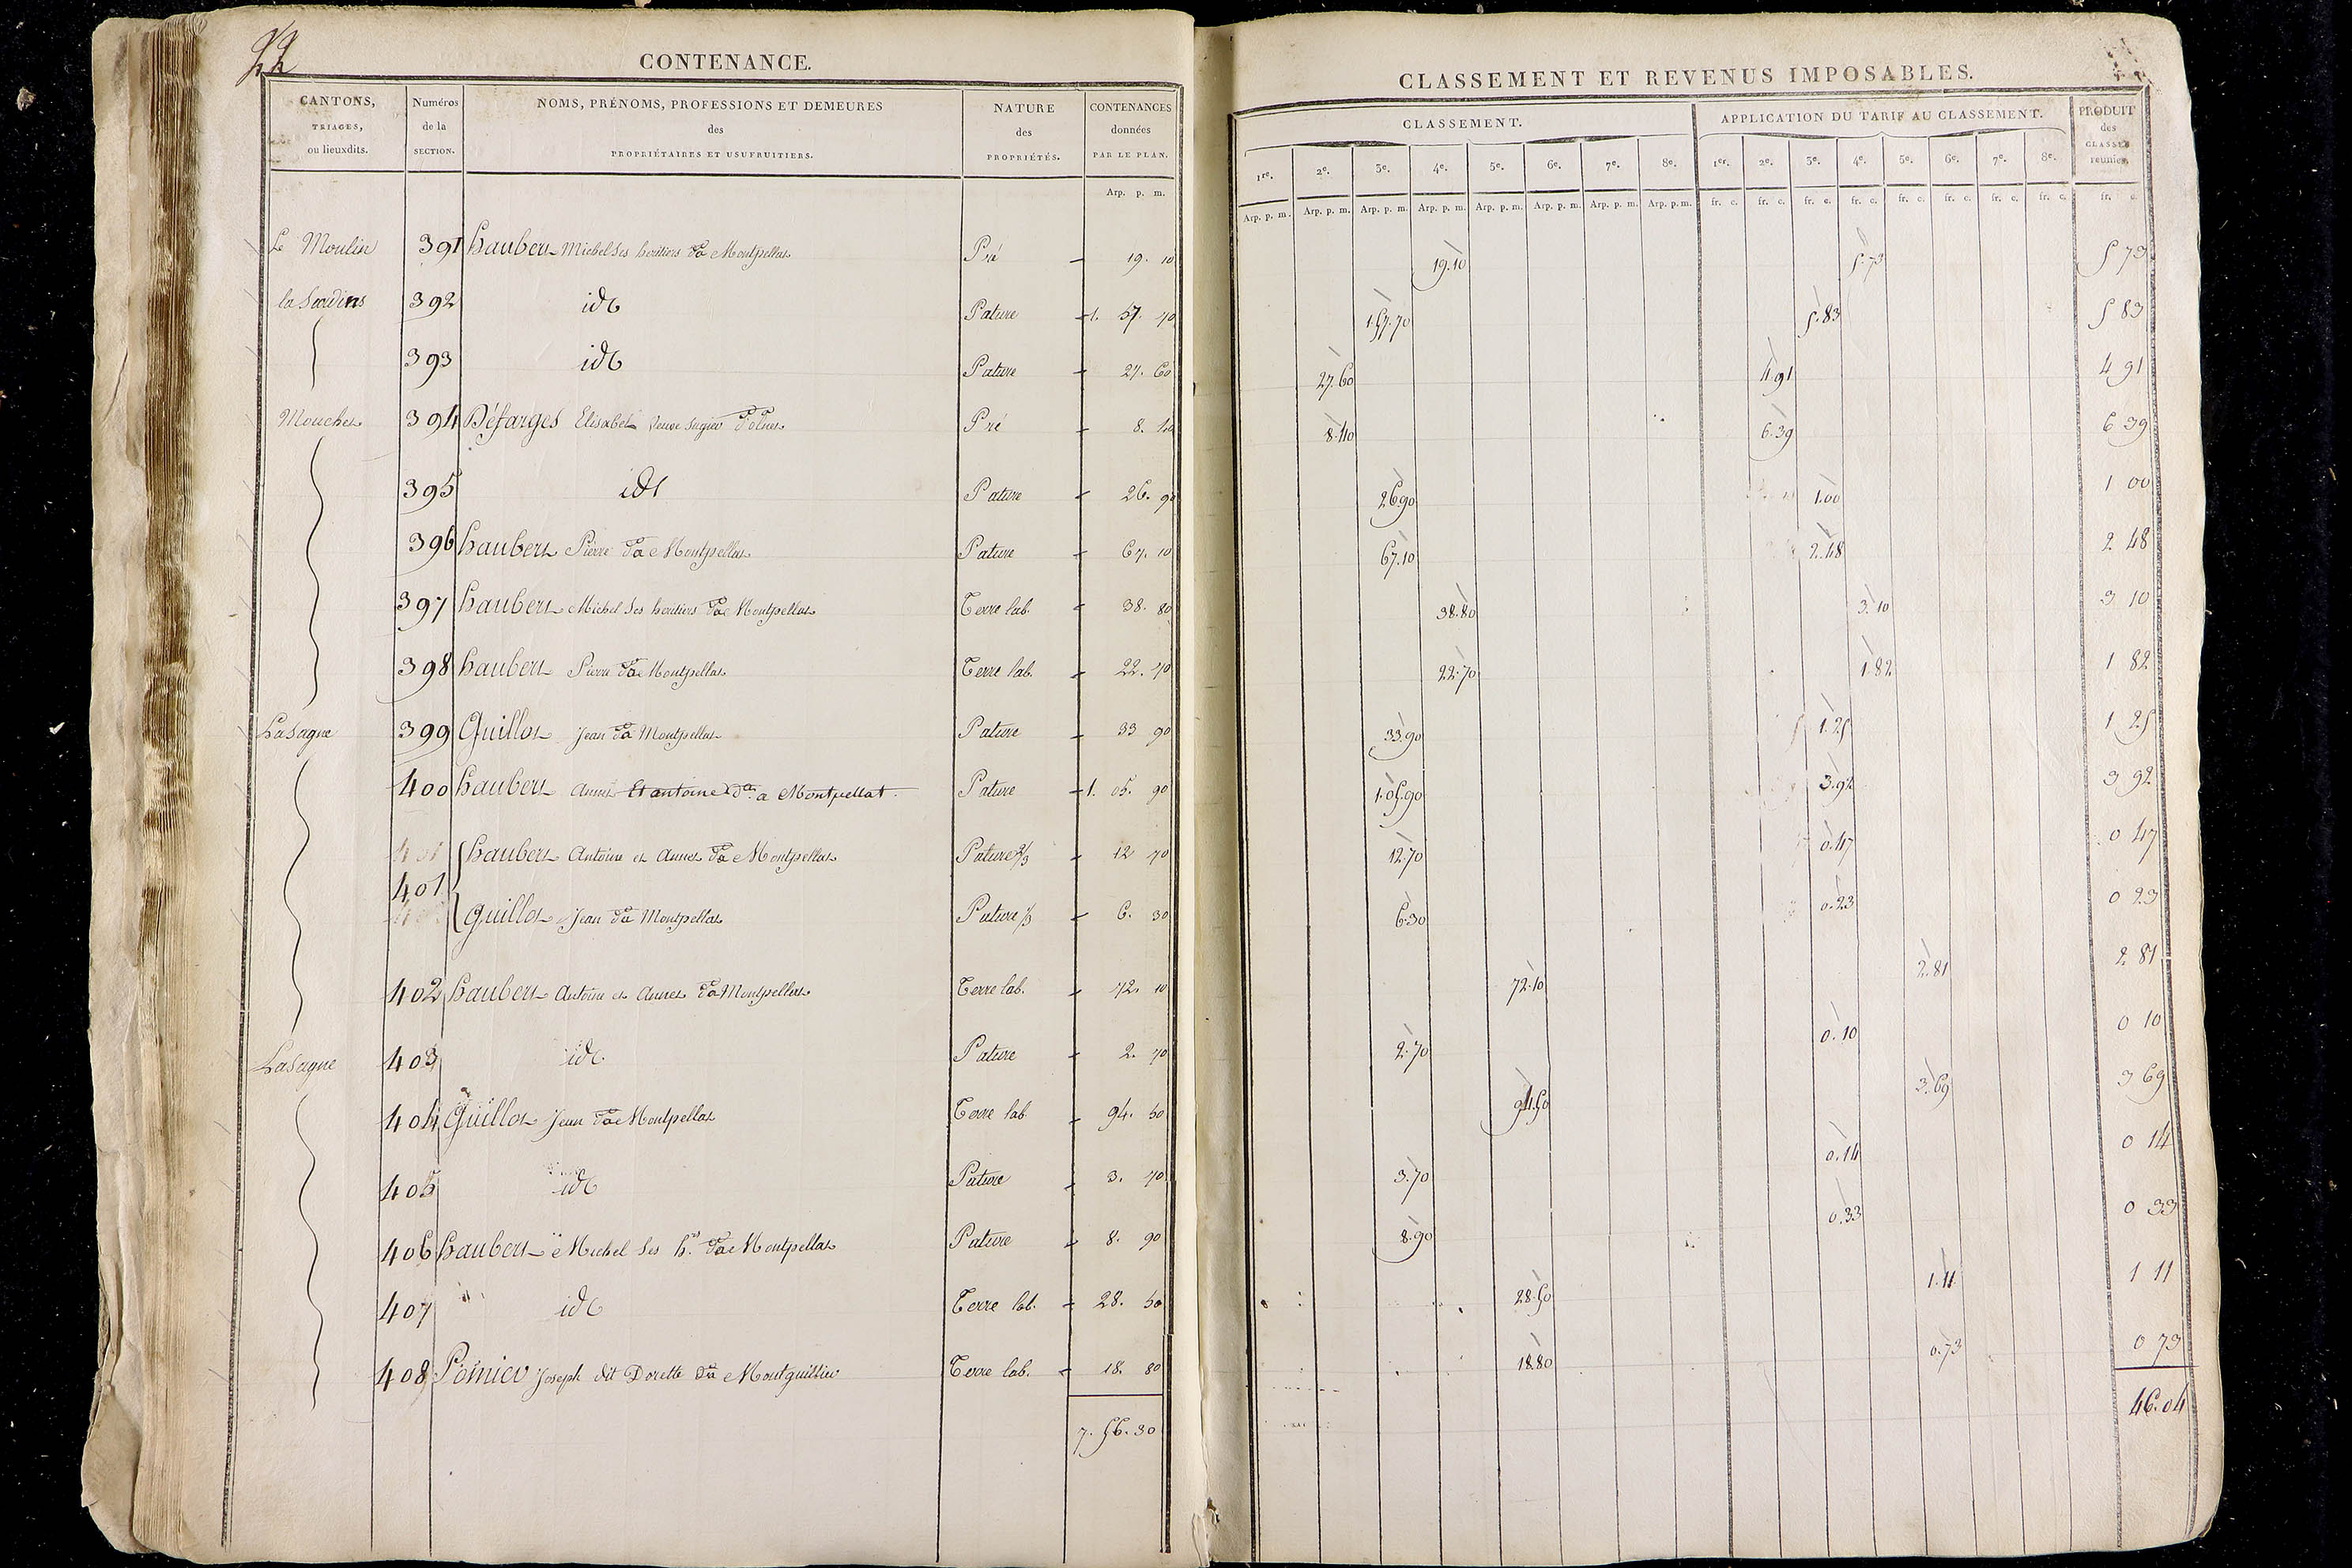 CONTENANCE.
CANTONS, TRIAGES, ou lieuxdits.
Numéros de la SECTION.
NOMS, PRÉNOMS, PROFESSIONS ET DEMEURES des PROPRIÉTAIRES ET USUFRUITIERS.
NATURE des PROPRIÉTÉS.
CONTENANCES données PAR LE PLAN.
Arp. p. m.
CLASSEMENT ET REVENUS IMPOSABLES.
CLASSEMENT.
APPLICATION DU TARIF AU CLASSEMENT.
PRODUIT des CLASSES réunies.
1re. 2e. 3e. 4e. 5e. 6e. 7e. 8e. 1er. 2e. 3e. 4e. 5e. 6e. 7e. 8e.
Arp. p. m. Arp. p. m. Arp. p. m. Arp. p. m. Arp. p. m. Arp. p. m. Arp. p. m. Arp. p. m. fr. c. fr. c. fr. c. fr. c. fr. c. fr. c. fr. c. fr. c. fr. c.
Le Moulin 391 haubert Michel Ses heritiers da Montpellat Pré 19. 10 19.10 5.73 5 73
392 id Pature 1. 57. 70 1.57.70 5.83 5 83
393 id Pature 27. 60 27.60 4.91 4 91
Mouches 394 Défarges Elisabet Veuve 8. 40 Pré 8.40 6.39 6 39
395 id Pature 26. 90 26.90 1.00 1 00
396 haubert Pierre da Montpellat Pature 67. 10 67.10 2.48 2 48
397 haubert Michel Ses heritiers da Montpellat Terre lab. 38. 80 38.80 3.10 3 10
398 haubert Pierre da Montpellat Terre lab. 22. 70 22.70 1.82 1 82
LaSagne 399 Quillot Jean da Montpellat Pature 33 90 33.90 1.25 1 25
400 haubert Annet Et antoine da a Montpellat Pature 1. 05. 90 1.05.90 3.92 3 92
401 haubert Antoine et Annet da Montpellat Pature 2/3 12 70 12.70 0.47 0 47
Quillot Jean da Montpellat Pature 1/3 6. 30 6.30 0.23 0 23
402 haubert Antoine et Annet da Montpellat Terre lab. 72. 10 72.10 2.81 2 81
LaSagne 403 id Pature 2. 70 2.70 0.10 0 10
404 Quillot Jean da Montpellat Terre lab 94. 50 94.50 3.69 3 69
405 id Pature 3. 70 3.70 0.14 0 14
406 haubert Michel Ses h.rs da Montpellat Pature 8. 90 8.90 0.33 0 33
407 id Terre lab. 28. 50 28.50 1.11 1 11
408 Joseph dit Dorette da Terre lab. 18. 80 18.80 0.73 0 73
7. 56. 30 46.04